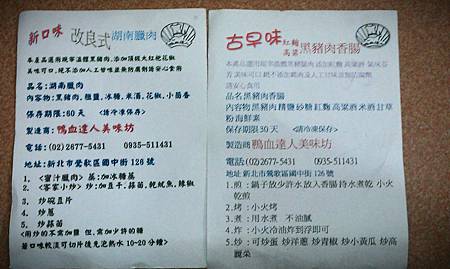 新口味 改良式 湖南臘肉
本產品選用現宰溫體黑豬肉,添加頂級大紅袍花椒
美味可口,絕不添加人工甘味並無防腐劑請安心食用
品名:湖南臘肉
內容物:黑豬肉,粗鹽,冰糖,米酒,花椒,小茴香
保存期限:60天 <請冷凍保存>
製造商:鴨血達人美味坊
電話:(02)2677-5431 0935-511431
地址:新北市鶯歌區國中街126號
1. <蜜汁臘肉>蒸:加冰糖蒸
2. <客家小炒>炒:加豆干,蒜苗,乾魷魚,辣椒
3. 炒碗豆片
4. 炒蔥
5. 炒蒜苗
<用炒的不需加鹽 但,需加少許的糖
著口味較淡可切片後先泡熱水10-20分鐘>
古早味 紅麴 高粱 黑豬肉香腸
本產品選用現宰溫體黑豬腿肉 添加紅麴 高粱酒
請安心食用
品名黑豬肉香腸
內容物黑豬肉精鹽砂糖紅麴高粱酒米酒甘草
粉海鮮素
保存期限30天 <請冷凍保存>
製造商鴨血達人美味坊
電話(02)2677-5431 0935-511431
地址新北市鶯歌區國中街126號
1.煎:鍋子放少許水放入香腸待水煮乾 小火
乾煎
2.烤:小火烤
3.煮:用水煮 不油膩
4.炸:小火冷油炸到浮即可
5.炒:可炒蛋 炒洋蔥 炒青椒 炒小黃瓜 炒高
麗菜